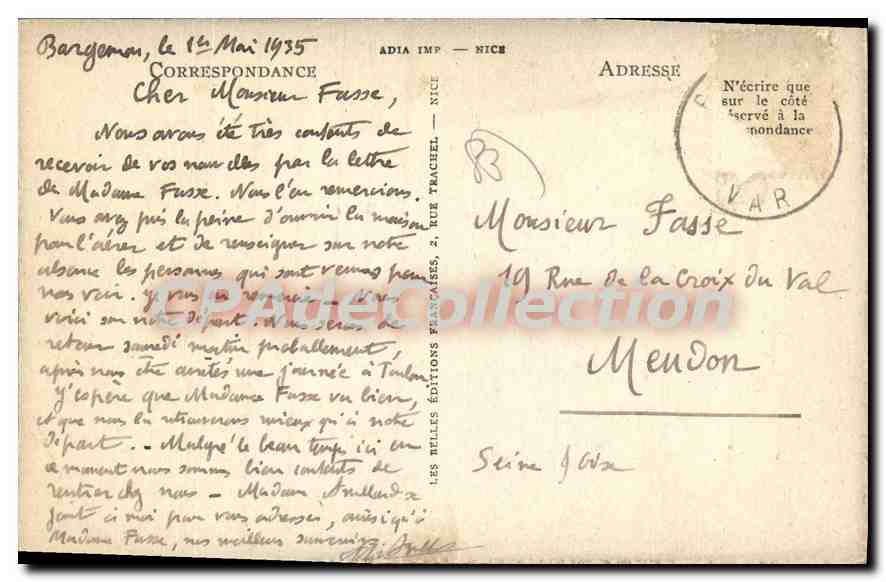 Bargemon, le 1er Mai 1935
ADIA IMP — NICE
CORRESPONDANCE
Cher Monsieur Fasse,
Nous avons été très contents de
recevoir de vos nouvelles par la lettre
de Madame Fasse. Nous l'en remercions.
Vous avez pris la peine d'ouvrir la maison
pour l'aérer et de renseigner sur notre
absence les personnes qui sont venues pour
nous voir. Je vous en remercie — Nous
voici sur notre départ. Nous serons de
retour samedi matin probablement,
après nous être arrêtés une journée à Toulon
J'espère que Madame Fasse va bien,
et que nous la retrouverons mieux qu'à notre
départ. — Malgré le beau temps ici en
ce moment nous sommes bien contents de
rentrer chez nous — Madame se
joint à moi pour vous adresser, ainsi qu'à
Madame Fasse, nos meilleurs souvenirs
LES BELLES ÉDITIONS FRANÇAISES, 2, RUE TRACHEL — NICE
ADRESSE
N'écrire que
sur le côté
éservé à la
pondance
VAR
83
Monsieur Fasse
19 Rue de la Croix du Val
Meudon
Seine & Oise
CPADeCollection